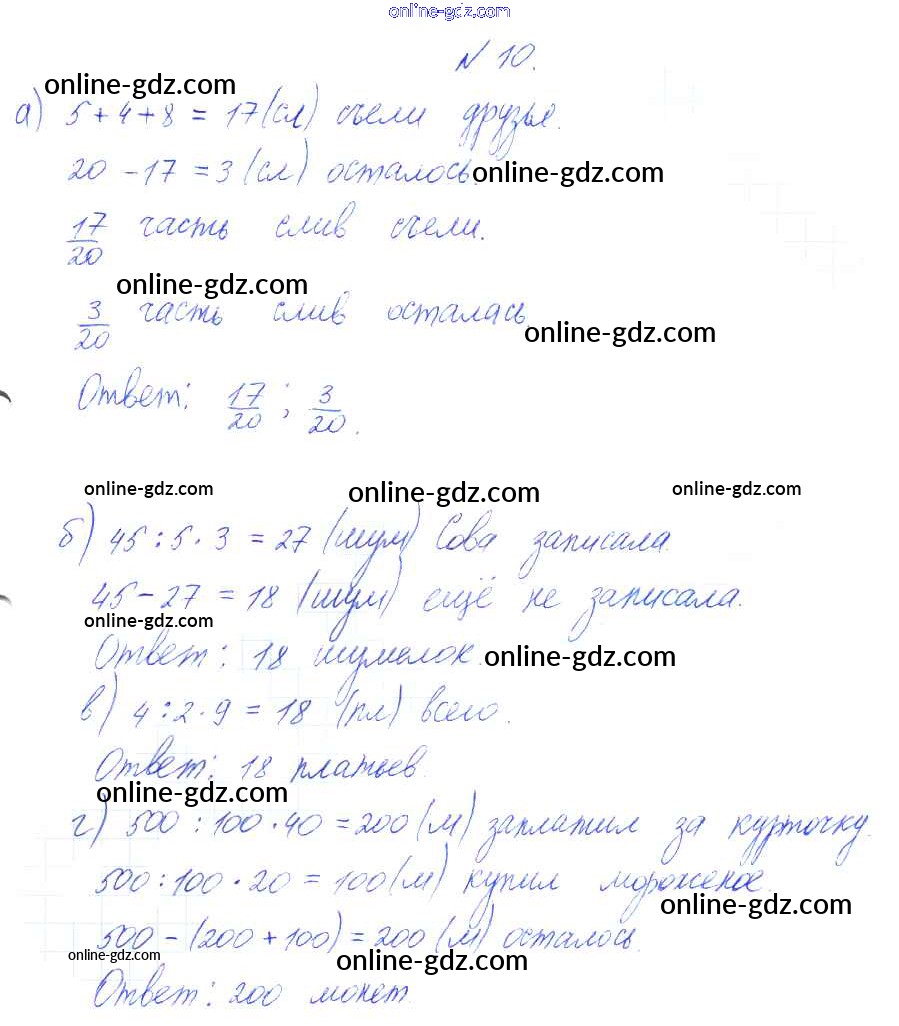 online-gdz.com
N 10.
online-gdz.com
а) 5+4+8 = 17 (сл) съели друзья.
20 - 17 = 3 (сл) осталось.
online-gdz.com
17/20 часть слив съели.
online-gdz.com
3/20 часть слив осталась.
online-gdz.com
Ответ: 17/20; 3/20.
online-gdz.com online-gdz.com online-gdz.com
б) 45 : 5 · 3 = 27 (шум) Сова записала.
45 - 27 = 18 (шум) ещё не записала.
online-gdz.com
Ответ: 18 шумелок.
online-gdz.com
в) 4 : 2 · 9 = 18 (пл) всего.
Ответ: 18 платьев.
online-gdz.com
г) 500 : 100 · 40 = 200 (м) заплатил за курточку.
500 : 100 · 20 = 100 (м) купил мороженое.
online-gdz.com
500 - (200 + 100) = 200 (м) осталось.
online-gdz.com online-gdz.com
Ответ: 200 монет.